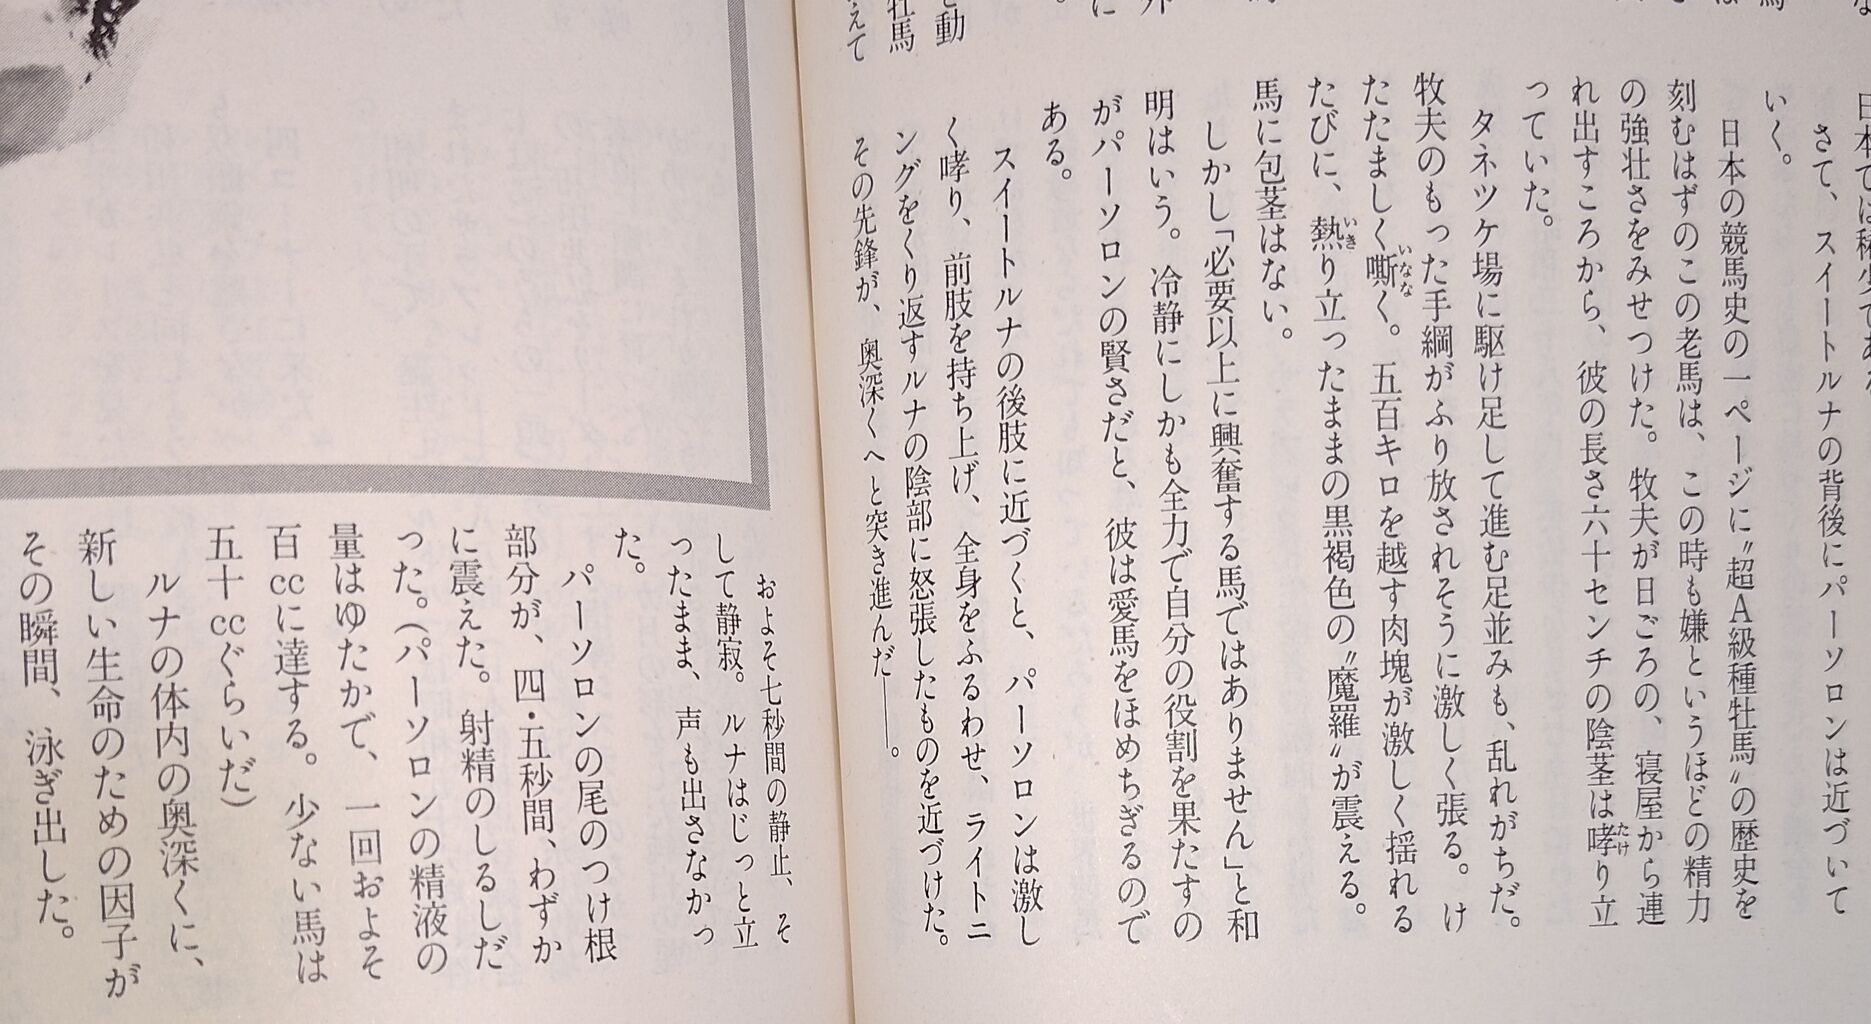 日本では稀少である
さて、スイートルナの背後にパーソロンは近づいて
いく。
日本の競馬史の一ページに〝超A級種牡馬〟の歴史を
刻むはずのこの老馬は、この時も嫌というほどの精力
の強壮さをみせつけた。牧夫が日ごろの、寝屋から連
れ出すころから、彼の長さ六十センチの陰茎は哮り立
たけ
っていた。
タネツケ場に駆け足して進む足並みも、乱れがちだ。
牧夫のもった手綱がふり放されそうに激しく張る。け
たたましく嘶く。五百キロを越す肉塊が激しく揺れる
いなな
たびに、熱り立ったままの黒褐色の〝魔羅〟が震える。
いき
馬に包茎はない。
しかし「必要以上に興奮する馬ではありません」と和
明はいう。冷静にしかも全力で自分の役割を果たすの
がパーソロンの賢さだと、彼は愛馬をほめちぎるので
ある。
スイートルナの後肢に近づくと、パーソロンは激し
く哮り、前肢を持ち上げ、全身をふるわせ、ライトニ
ングをくり返すルナの陰部に怒張したものを近づけた。
その先鋒が、奥深くへと突き進んだ――。
と動
牡馬
えて
およそ七秒間の静止、そ
して静寂。ルナはじっと立
ったまま、声も出さなかっ
た。
パーソロンの尾のつけ根
部分が、四・五秒間、わずか
に震えた。射精のしるしだ
った。（パーソロンの精液の
量はゆたかで、一回およそ
百ccに達する。少ない馬は
五十ccぐらいだ）
ルナの体内の奥深くに、
新しい生命のための因子が
その瞬間、泳ぎ出した。